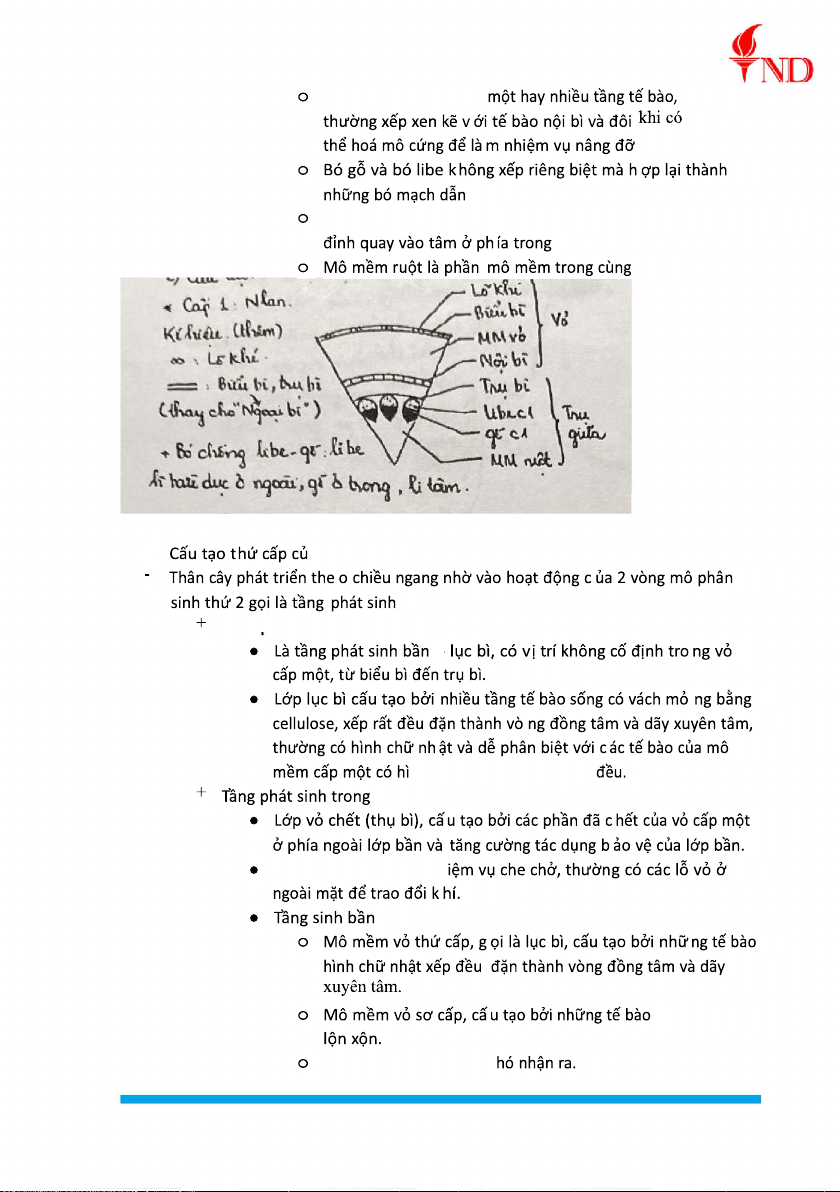 ND
o một hay nhiều tầng tế bào,
thường xếp xen kẽ với tế bào nội bì và đôi khi có
thể hoá mô cứng để làm nhiệm vụ nâng đỡ
o Bó gỗ và bó libe không xếp riêng biệt mà hợp lại thành
những bó mạch dẫn
o
đỉnh quay vào tâm ở phía trong
o Mô mềm ruột là phần mô mềm trong cùng
* Cấp 1: Nhan.
Kí hiệu (thêm)
∞ : Lỗ khí.
═ : Biểu bì, trụ bì
(thay cho "Ngoại bì")
+ Bó chồng libe-gỗ: libe
ở ngoài, gỗ ở trong, li tâm.
Lỗ khí
Biểu bì
MM vỏ
Nội bì
Vỏ
Trụ bì
libe c1
gỗ c1
MM ruột
Trụ giữa
Cấu tạo thứ cấp củ
- Thân cây phát triển theo chiều ngang nhờ vào hoạt động của 2 vòng mô phân
sinh thứ 2 gọi là tầng phát sinh
+ .
● Là tầng phát sinh bần - lục bì, có vị trí không cố định trong vỏ
cấp một, từ biểu bì đến trụ bì.
● Lớp lục bì cấu tạo bởi nhiều tầng tế bào sống có vách mỏng bằng
cellulose, xếp rất đều đặn thành vòng đồng tâm và dãy xuyên tâm,
thường có hình chữ nhật và dễ phân biệt với các tế bào của mô
mềm cấp một có hì đều.
+ Tầng phát sinh trong
● Lớp vỏ chết (thụ bì), cấu tạo bởi các phần đã chết của vỏ cấp một
ở phía ngoài lớp bần và tăng cường tác dụng bảo vệ của lớp bần.
● iệm vụ che chở, thường có các lỗ vỏ ở
ngoài mặt để trao đổi khí.
● Tầng sinh bần
o Mô mềm vỏ thứ cấp, gọi là lục bì, cấu tạo bởi những tế bào
hình chữ nhật xếp đều đặn thành vòng đồng tâm và dãy
xuyên tâm.
o Mô mềm vỏ sơ cấp, cấu tạo bởi những tế bào
lộn xộn.
o hó nhận ra.